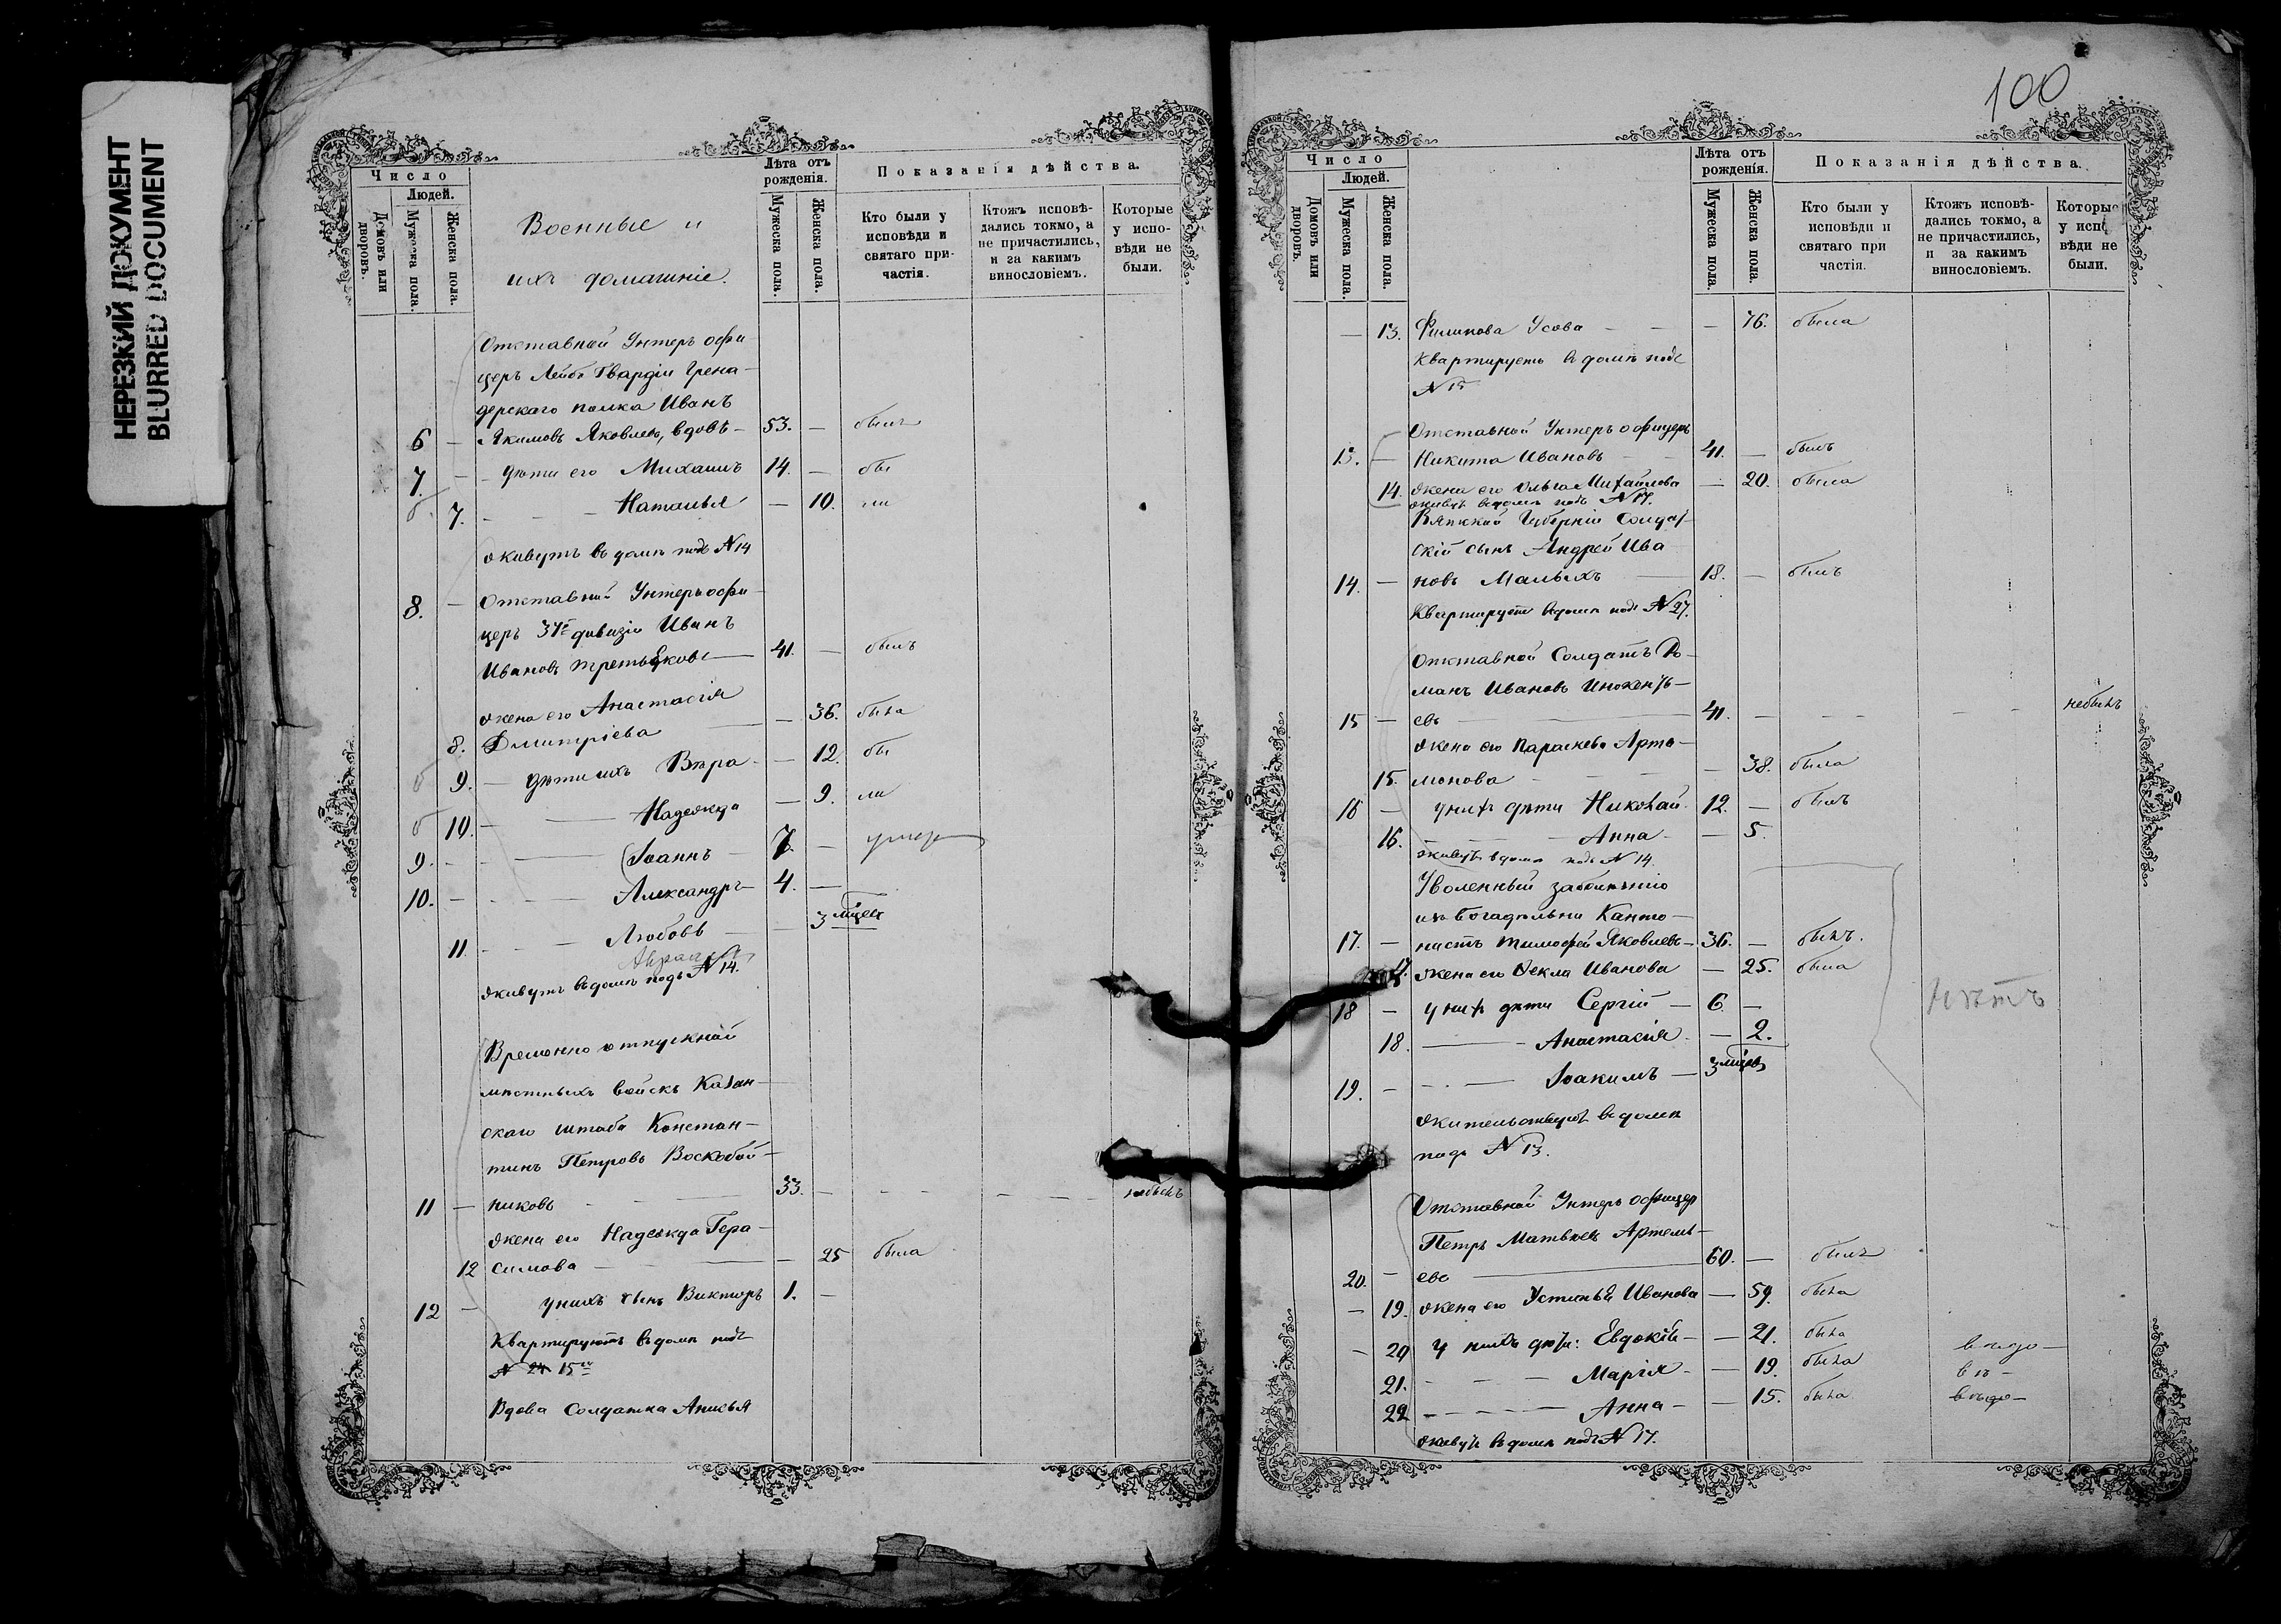 НЕРЕЗКИЙ ДОКУМЕНТ
BLURRED DOCUMENT
Число
Людей.
Домовъ или дворовъ.
Мужеска пола.
Женска пола.
Военные и
ихъ домашніе.
Лѣта отъ рожденія.
Мужеска пола.
Женска пола.
Показанія дѣйства.
Кто были у исповѣди и святаго причастія.
Ктожъ исповѣдались токмо, а не причастились, и за какимъ винословіемъ.
Которые у исповѣди не были.
Отставной Унтеръ офи
церъ Лейбъ Гвардіи Грена-
дерскаго полка Иванъ
6 — Якимовъ Яковлевъ, вдовъ — 53. — былъ
7. — дѣти его Михаилъ 14. — бы
7. — — Наталья — 10. ли
живутъ въ домѣ подъ N 14
8. — Отставной Унтеръ офи-
церъ 37й дивизіи Иванъ
Ивановъ Третьяковъ — 41. — былъ
жена его Анастасія
8. Дмитріева — 36. была
9. — дѣти ихъ Вѣра — 12. бы
10. — Надежда — 9. ли
9. — — Іоаннъ 7. —
10. — — Александръ 4. —
11. — — Любовь — 3 мѣсяц
живутъ въ домѣ подъ N 14.
Временно отпускной
мѣстныхъ войскъ Казан-
скаго штаба Констан-
тинъ Петровъ Воскобой-
11 — никовъ 33. — — — — небылъ
жена его Надежда Гера-
12 симова — — 25 была
12 — у нихъ сынъ Викторъ 1. —
Квартируютъ въ домѣ подъ
N 24 15мъ
Вдова Солдатка Анисья
100
Число
Людей.
Домовъ или дворовъ.
Мужеска пола.
Женска пола.
Лѣта отъ рожденія.
Мужеска пола.
Женска пола.
Показанія дѣйства.
Кто были у исповѣди и святаго причастія.
Ктожъ исповѣдались токмо, а не причастились, и за какимъ винословіемъ.
Которые у исповѣди не были.
— 13. Филипова Усова — — — 76. была
Квартируетъ въ домѣ подъ
N 15
Отставной Унтеръ офицеръ
13. — Никита Ивановъ — 41. — былъ
14. жена его Ольга Михайлова — 20. была
живутъ въ домѣ подъ N 17.
Вятской Губерніи Солдат
скій сынъ Андрей Ива
14. — новъ Малыхъ — 18. — былъ
Квартируетъ въ домѣ подъ N 27.
Отставной Солдатъ Ро-
манъ Ивановъ Инокентьㅤ-
15 — евъ — 41. — — — — небылъ
жена его Параскева Арта-
15. монова — — — 38. была
16 — у нихъ дѣти Николай 12. — былъ
16. — Анна — — 5.
живутъ въ домѣ подъ N 14.
Уволенный за болѣзнію
изъ богадѣльни Канто-
17. — нистъ Тимофей Яковлевъ — 36. — былъ.
17. жена его Фекла Иванова — 25. была
18 — у нихъ дѣти Сергій — 6 —
нѣтъ
18. — Анастасія — — 2.
19. — — Іоакимъ — 3 мѣсяц
жительствуютъ въ домѣ
подъ N 13.
Отставной Унтеръ офицеръ
Петръ Матвѣевъ Артемь-
20. — евъ — 60. — былъ
— 19. жена его Устинья Иванова — 59. была
— 20 у нихъ дѣти: Евдокія — — 21. была
21. — — Марія — — 19. была
22 — — Анна — — 15. была
живутъ въ домѣ подъ N 17.